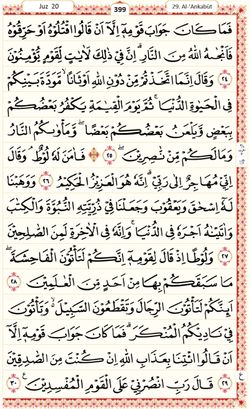 Juz 20 399 29. Al-'Ankabūt
فَمَا كَانَ جَوَابَ قَوْمِهٖٓ اِلَّآ اَنْ قَالُوا اقْتُلُوْهُ اَوْ حَرِّقُوْهُ
فَاَنْجٰىهُ اللّٰهُ مِنَ النَّارِۗ اِنَّ فِيْ ذٰلِكَ لَاٰيٰتٍ لِّقَوْمٍ يُّؤْمِنُوْنَ
﴿٢٤﴾ وَقَالَ اِنَّمَا اتَّخَذْتُمْ مِّنْ دُوْنِ اللّٰهِ اَوْثَانًاۙ مَّوَدَّةَ بَيْنِكُمْ
فِى الْحَيٰوةِ الدُّنْيَاۚ ثُمَّ يَوْمَ الْقِيٰمَةِ يَكْفُرُ بَعْضُكُمْ
بِبَعْضٍ وَّيَلْعَنُ بَعْضُكُمْ بَعْضًاۖ وَّمَأْوٰىكُمُ النَّارُ
وَمَا لَكُمْ مِّنْ نّٰصِرِيْنَۖ ﴿٢٥﴾ فَاٰمَنَ لَهٗ لُوْطٌۘ وَقَالَ
اِنِّيْ مُهَاجِرٌ اِلٰى رَبِّيْۗ اِنَّهٗ هُوَ الْعَزِيْزُ الْحَكِيْمُ ﴿٢٦﴾ وَوَهَبْنَا
لَهٗٓ اِسْحٰقَ وَيَعْقُوْبَ وَجَعَلْنَا فِيْ ذُرِّيَّتِهِ النُّبُوَّةَ وَالْكِتٰبَ
وَاٰتَيْنٰهُ اَجْرَهٗ فِى الدُّنْيَاۚ وَاِنَّهٗ فِى الْاٰخِرَةِ لَمِنَ الصّٰلِحِيْنَ
﴿٢٧﴾ وَلُوْطًا اِذْ قَالَ لِقَوْمِهٖٓ اِنَّكُمْ لَتَأْتُوْنَ الْفَاحِشَةَۖ
مَا سَبَقَكُمْ بِهَا مِنْ اَحَدٍ مِّنَ الْعٰلَمِيْنَ ﴿٢٨﴾
اَىِٕنَّكُمْ لَتَأْتُوْنَ الرِّجَالَ وَتَقْطَعُوْنَ السَّبِيْلَۙ وَتَأْتُوْنَ
فِيْ نَادِيْكُمُ الْمُنْكَرَۗ فَمَا كَانَ جَوَابَ قَوْمِهٖٓ اِلَّآ
اَنْ قَالُوا ائْتِنَا بِعَذَابِ اللّٰهِ اِنْ كُنْتَ مِنَ الصّٰدِقِيْنَ
﴿٢٩﴾ قَالَ رَبِّ انْصُرْنِيْ عَلَى الْقَوْمِ الْمُفْسِدِيْنَ ﴿٣٠﴾